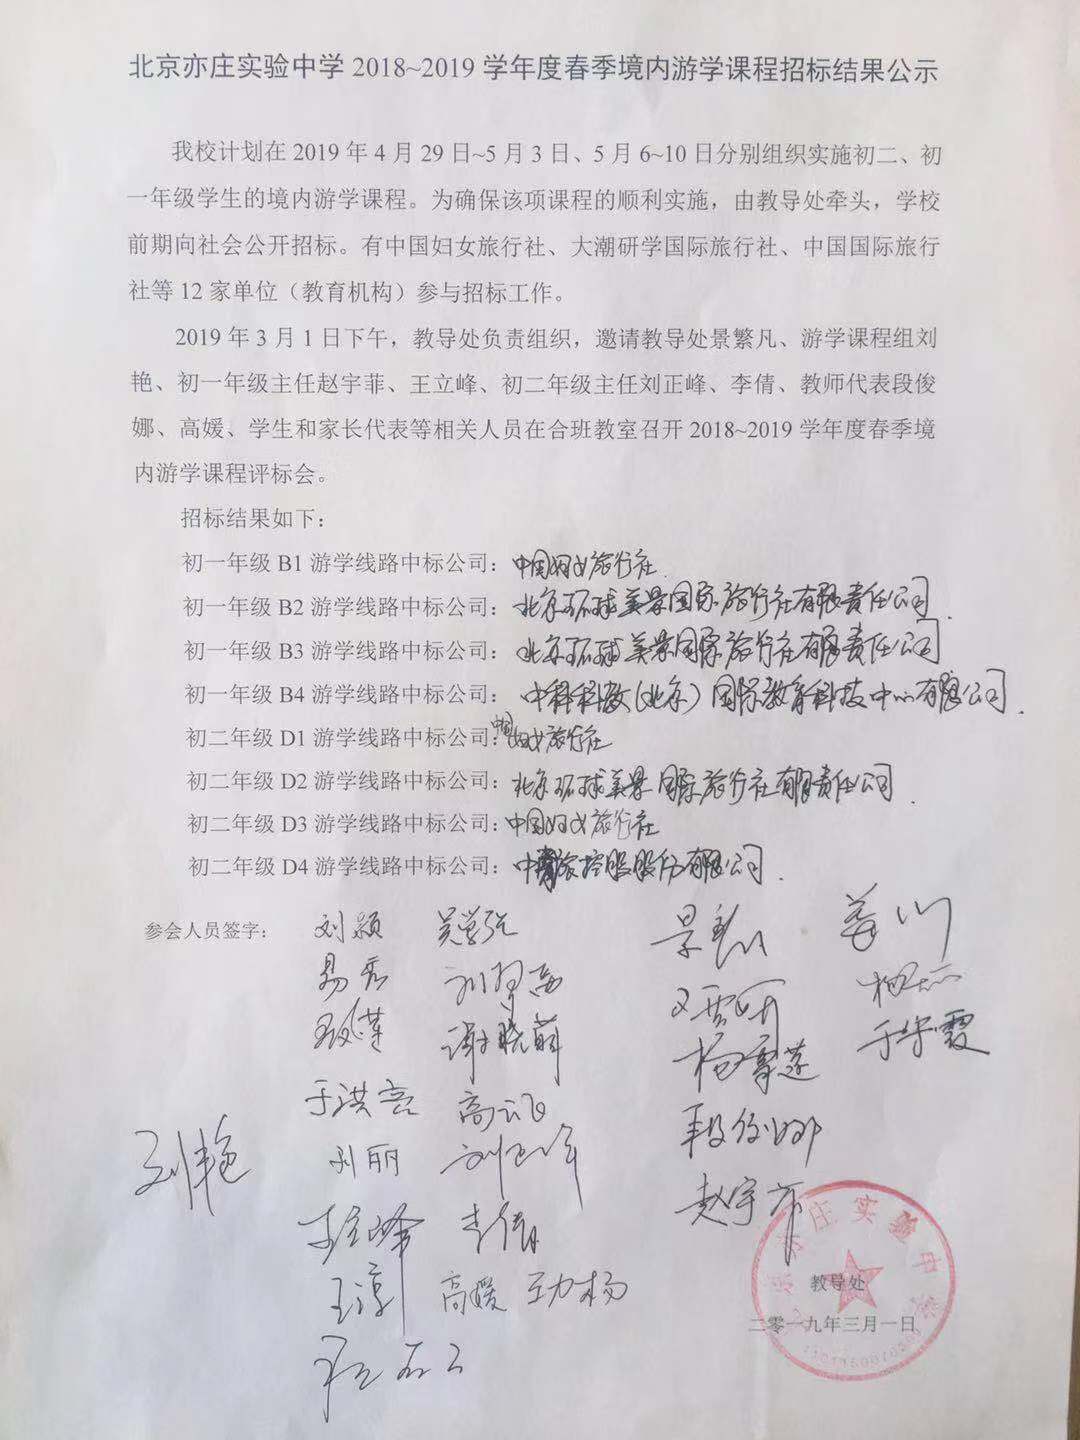 北京亦庄实验中学2018~2019学年度春季境内游学课程招标结果公示
我校计划在2019年4月29日~5月3日、5月6~10日分别组织实施初二、初
一年级学生的境内游学课程。为确保该项课程的顺利实施，由教导处牵头，学校
前期向社会公开招标。有中国妇女旅行社、大潮研学国际旅行社、中国国际旅行
社等12家单位（教育机构）参与招标工作。
2019年3月1日下午，教导处负责组织，邀请教导处景繁凡、游学课程组刘
艳、初一年级主任赵宇菲、王立峰、初二年级主任刘正峰、李倩、教师代表段俊
娜、高媛、学生和家长代表等相关人员在合班教室召开2018~2019学年度春季境
内游学课程评标会。
招标结果如下：
初一年级B1游学线路中标公司：中国妇女旅行社.
初一年级B2游学线路中标公司：北京环球美景国际旅行社有限责任公司.
初一年级B3游学线路中标公司：北京环球美景国际旅行社有限责任公司
初一年级B4游学线路中标公司：中科科教(北京)国际教育科技中心有限公司.
初二年级D1游学线路中标公司：中国妇女旅行社
初二年级D2游学线路中标公司：北京环球美景国际旅行社有限责任公司.
初二年级D3游学线路中标公司：中国妇女旅行社
初二年级D4游学线路中标公司：中青旅控股股份有限公司.
参会人员签字： 刘颖
谢晓萌
杨雪莲
于洪亮 高云飞
段俊娜
刘艳 刘丽 刘正峰
赵宇菲
李倩
高媛
亦庄实验中学
教导处
二零一九年三月一日